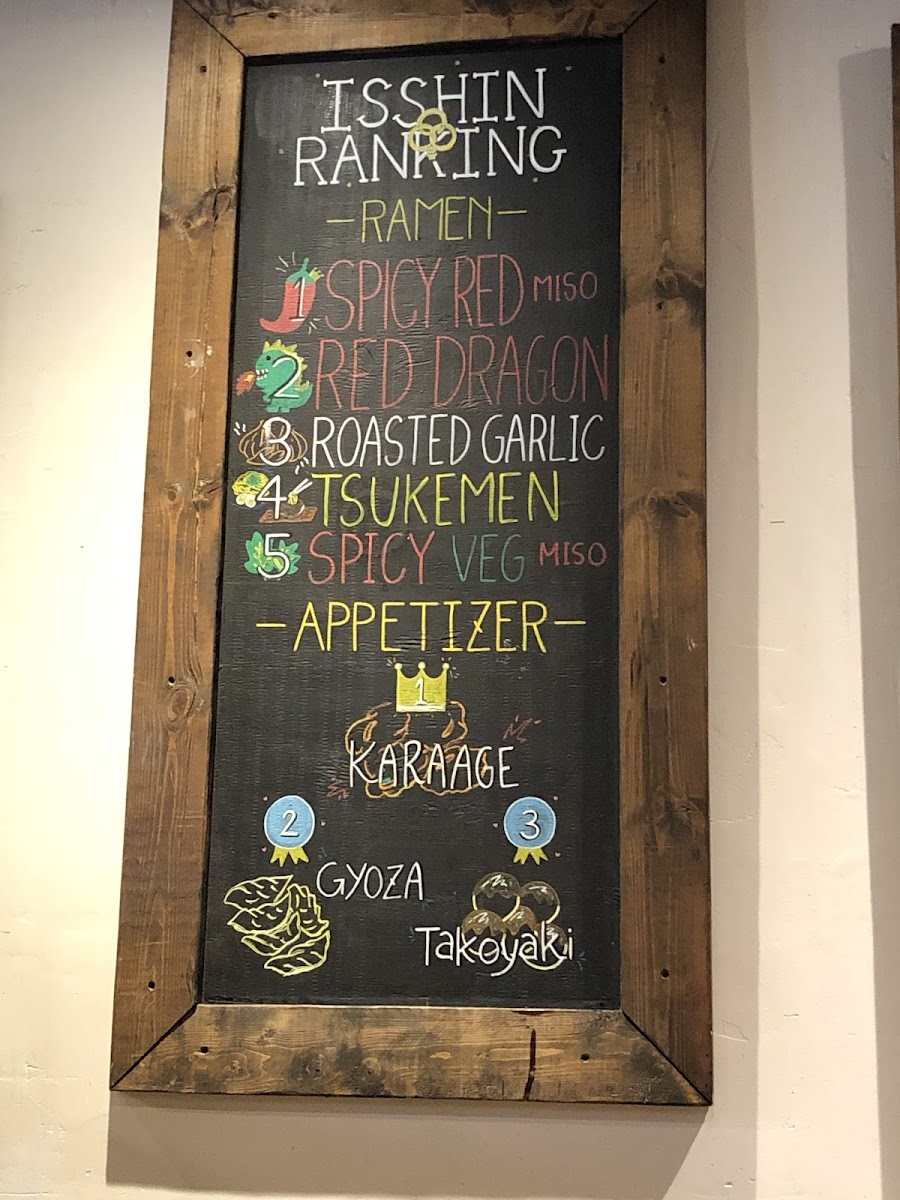 ISSHIN
RANKING
-RAMEN-
1 SPICY RED MISO
2 RED DRAGON
3 ROASTED GARLIC
4 TSUKEMEN
5 SPICY VEG MISO
-APPETIZER-
1
KARAAGE
2
GYOZA
3
Takoyaki